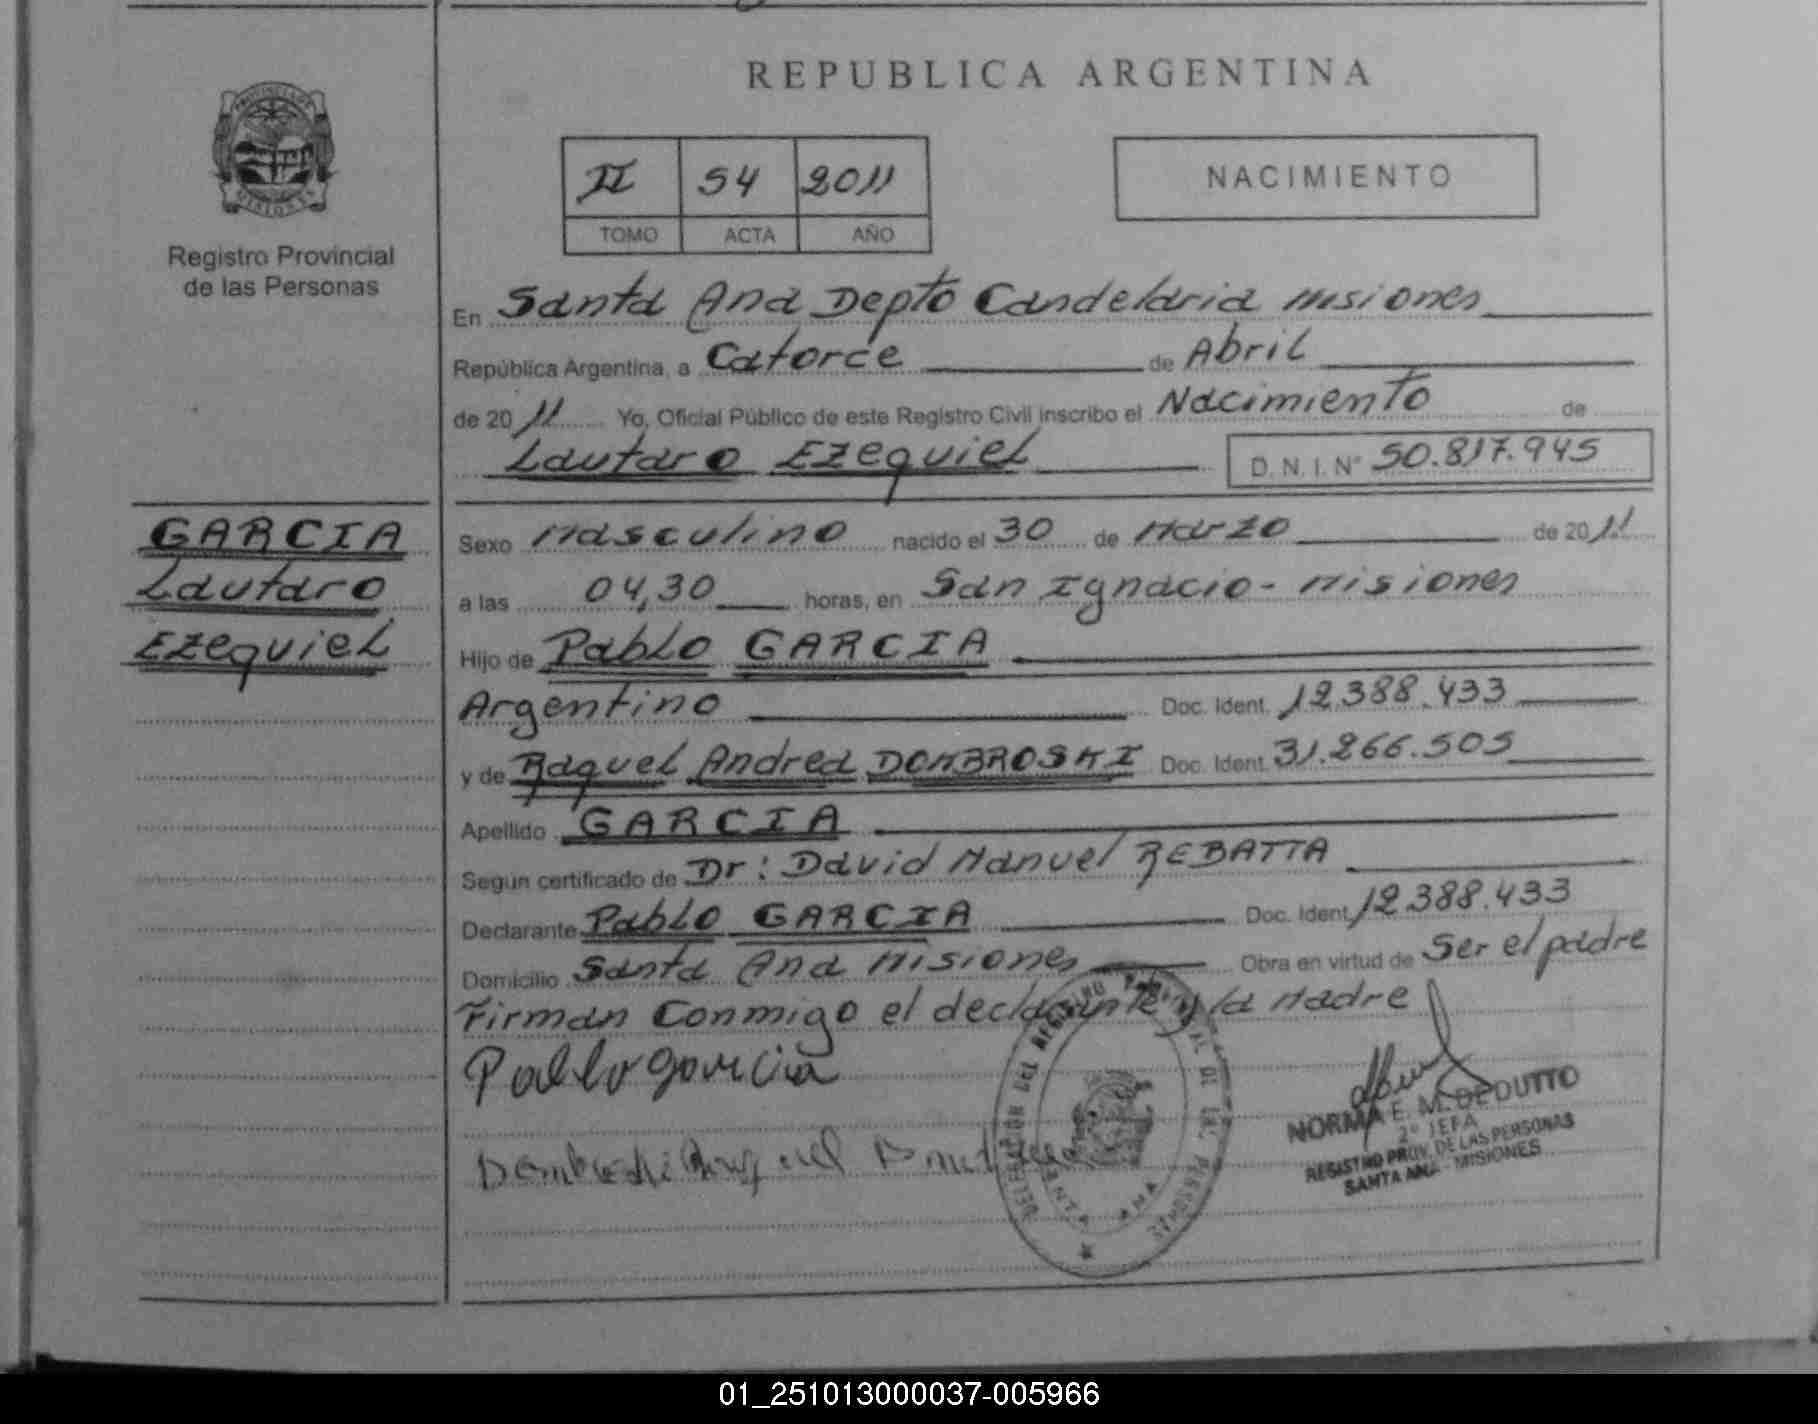 REPUBLICA ARGENTINA
PROVINCIA DE
MISIONES
Registro Provincial
de las Personas
II 54 2011
TOMO ACTA AÑO
NACIMIENTO
En Santa Ana Depto Candelaria Misiones
República Argentina, a Catorce de Abril
de 2011 Yo, Oficial Público de este Registro Civil inscribo el Nacimiento de
Lautaro Ezequiel D. N. I. Nº 50.817.945
GARCIA
Lautaro
Ezequiel
Sexo Masculino nacido el 30 de Marzo de 2011
a las 04,30 horas, en San Ignacio - Misiones
Hijo de Pablo GARCIA
Argentino Doc. Ident. 12.388.433
y de Raquel Andrea DOMBROSKI Doc. Ident. 31.266.505
Apellido GARCIA
Según certificado de Dr: David Manuel REBATTA
Declarante Pablo GARCIA Doc. Ident. 12.388.433
Domicilio Santa Ana Misiones Obra en virtud de Ser el padre
Firman Conmigo el declarante y la Madre
Pablo garcia
DELEGACION DEL REGISTRO PROVINCIAL DE LAS PERSONAS
ANA
NORMA E. M. DEDUTTO
2º JEFA
REGISTRO PROV. DE LAS PERSONAS
SANTA ANA - MISIONES
01_251013000037-005966